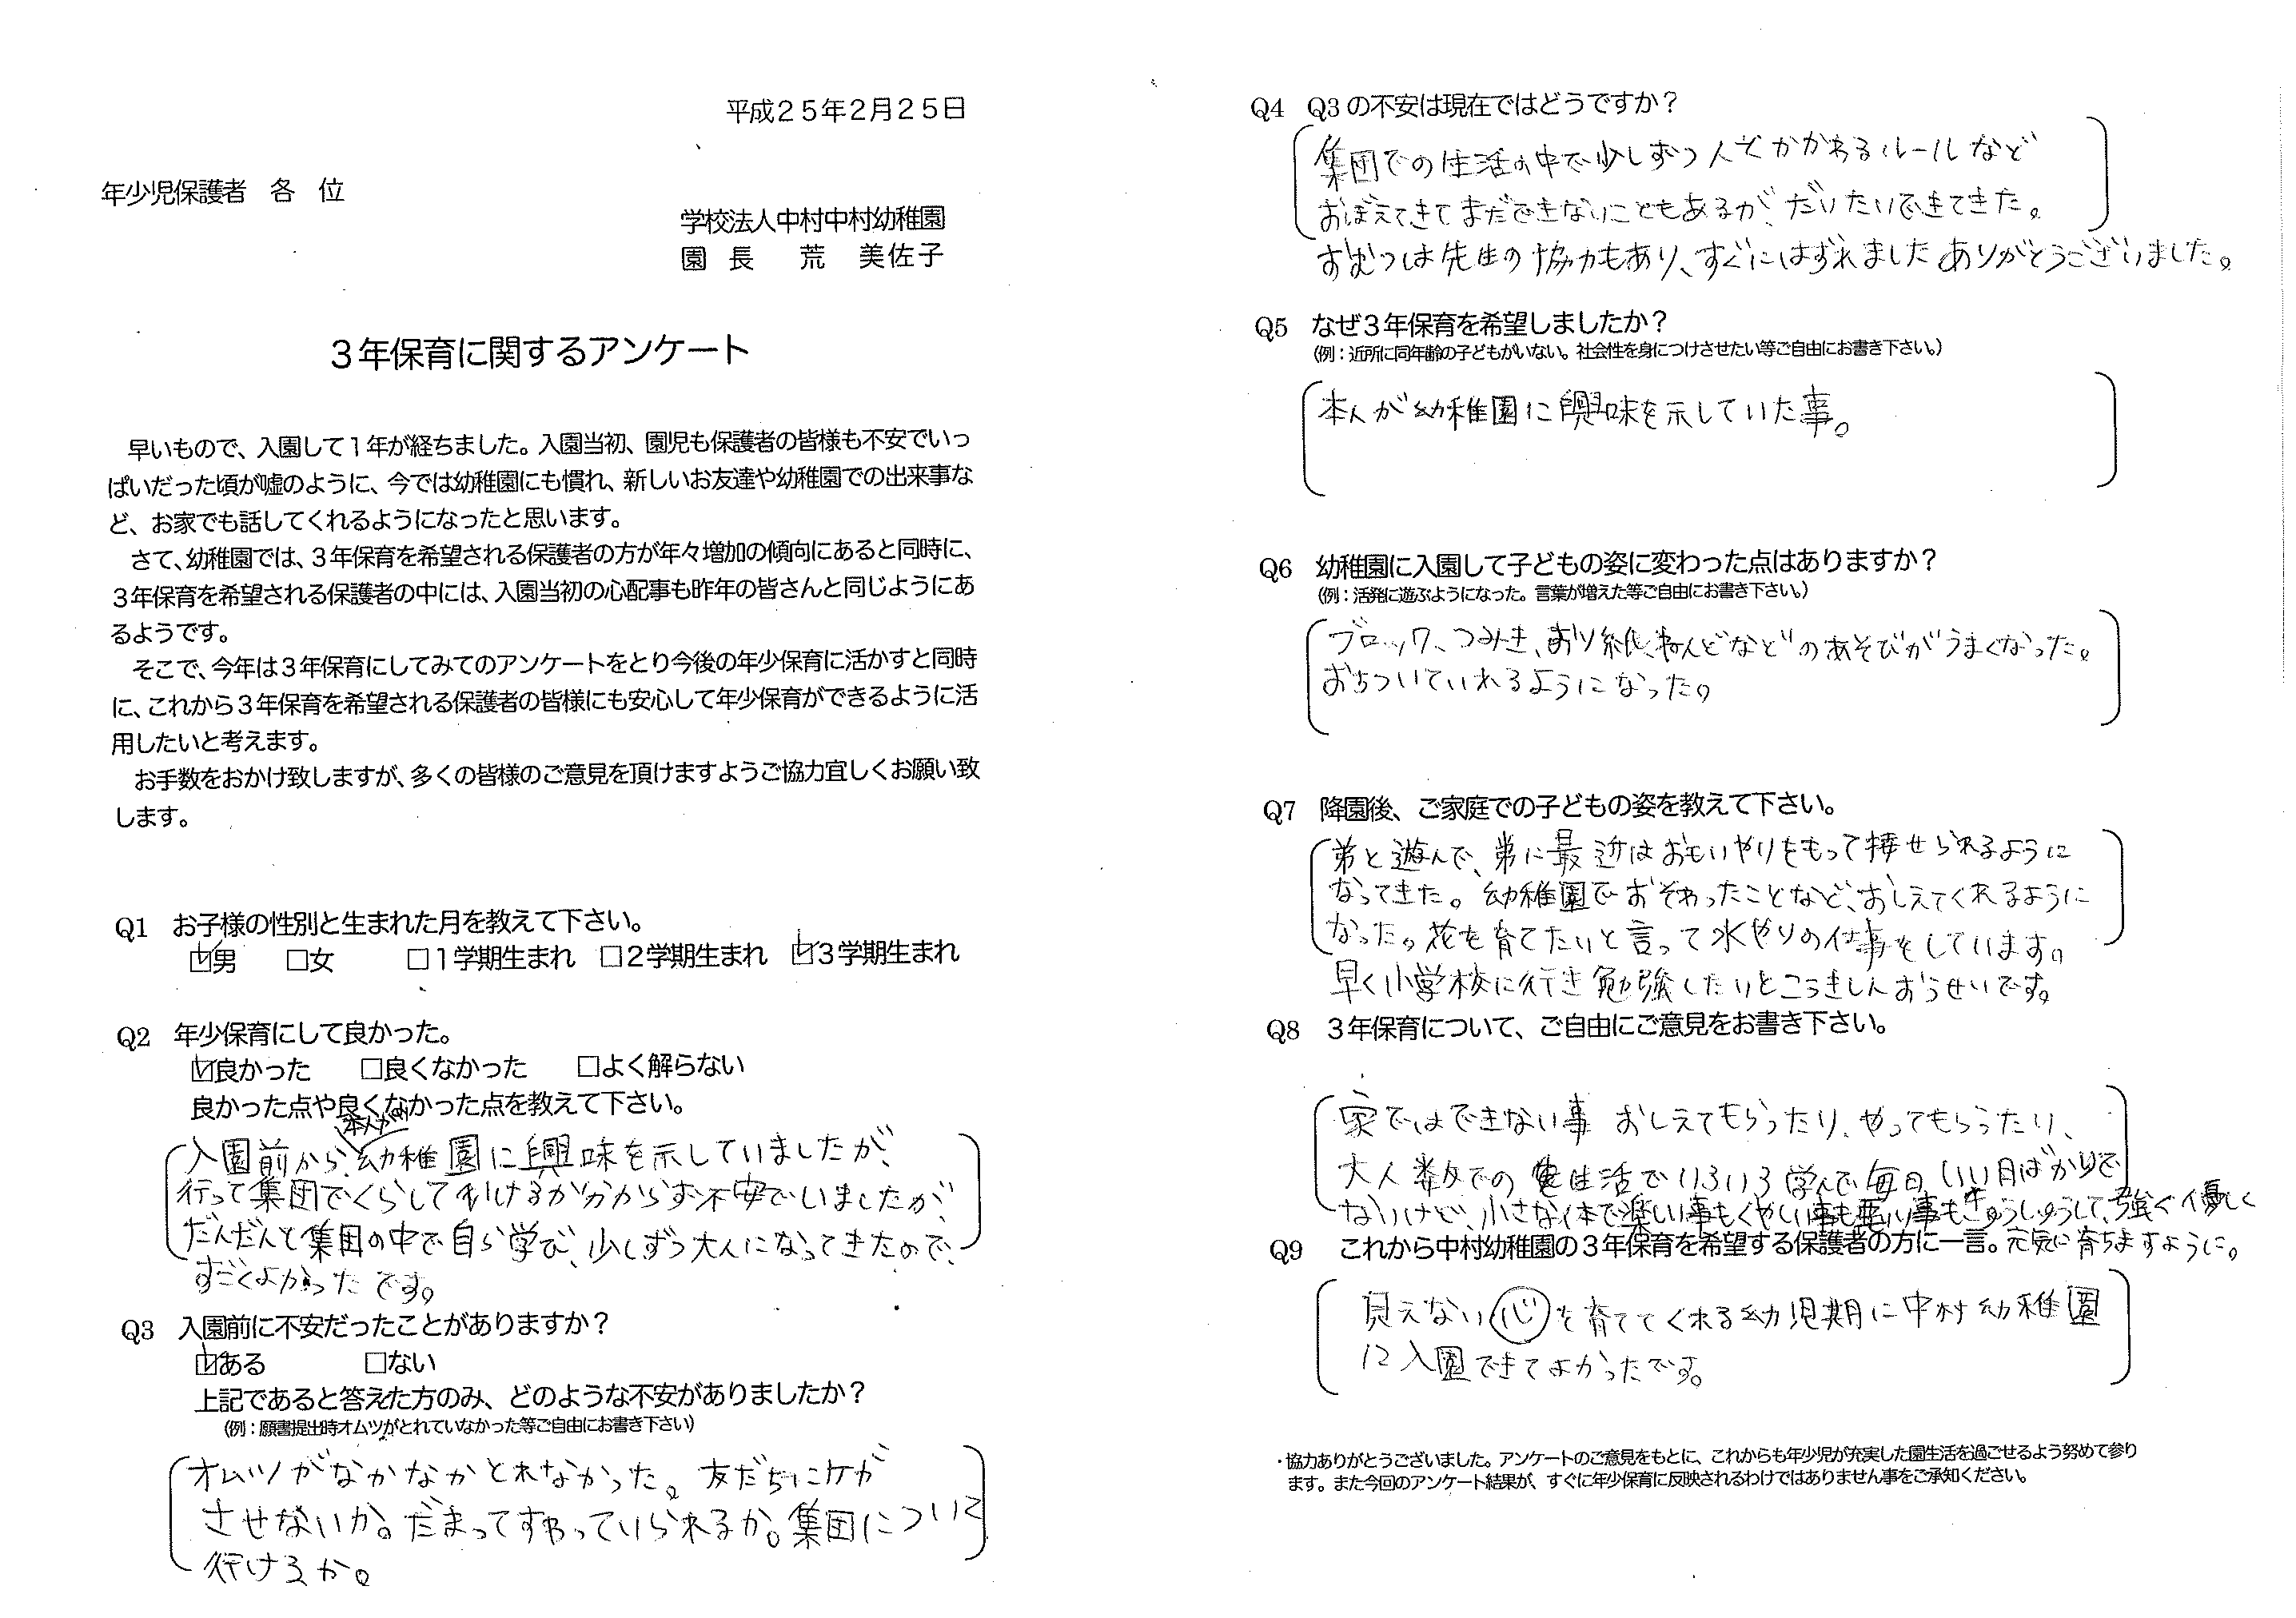 平成25年2月25日
年少児保護者　各　位
学校法人中村中村幼稚園
園　長　　荒　美佐子
3年保育に関するアンケート
早いもので、入園して1年が経ちました。入園当初、園児も保護者の皆様も不安でいっ
ぱいだった頃が嘘のように、今では幼稚園にも慣れ、新しいお友達や幼稚園での出来事な
ど、お家でも話してくれるようになったと思います。
さて、幼稚園では、3年保育を希望される保護者の方が年々増加の傾向にあると同時に、
3年保育を希望される保護者の中には、入園当初の心配事も昨年の皆さんと同じようにあ
るようです。
そこで、今年は3年保育にしてみてのアンケートをとり今後の年少保育に活かすと同時
に、これから3年保育を希望される保護者の皆様にも安心して年少保育ができるように活
用したいと考えます。
お手数をおかけ致しますが、多くの皆様のご意見を頂けますようご協力宜しくお願い致
します。
Q1　お子様の性別と生まれた月を教えて下さい。
☑男　□女　□1学期生まれ　□2学期生まれ　☑3学期生まれ
Q2　年少保育にして良かった。
☑良かった　□良くなかった　□よく解らない
良かった点や良くなかった点を教えて下さい。
本人が
入園前から、幼稚園に興味を示していましたが、
行って集団でくらして行けるか分からず不安でいましたが、
だんだんと集団の中で自ら学び、少しずつ大人になってきたので、
すごくよかったです。
Q3　入園前に不安だったことがありますか？
☑ある　□ない
上記であると答えた方のみ、どのような不安がありましたか？
（例：願書提出時オムツがとれていなかった等ご自由にお書き下さい）
オムツがなかなかとれなかった。友だちにケガ
させないか。だまってすわっていられるか。集団について
行けるか。
Q4　Q3の不安は現在ではどうですか？
集団での生活の中で少しずつ人とかかわるルールなど
おぼえてきてまだできないこともあるが、だいたいできてきた。
おむつは先生の協力もあり、すぐにはずれました ありがとうございました。
Q5　なぜ3年保育を希望しましたか？
（例：近所に同年齢の子どもがいない。社会性を身につけさせたい等ご自由にお書き下さい。）
本人が幼稚園に興味を示していた事。
Q6　幼稚園に入園して子どもの姿に変わった点はありますか？
（例：活発に遊ぶようになった。言葉が増えた等ご自由にお書き下さい。）
ブロック、つみき、おり紙、ねんどなどのあそびがうまくなった。
おちついていれるようになった。
Q7　降園後、ご家庭での子どもの姿を教えて下さい。
弟と遊んで、弟に最近はおもいやりをもって接せられるように
なってきた。幼稚園でおそわったことなど、おしえてくれるように
なった。花を育てたいと言って水やりの仕事をしています。
早く小学校に行き勉強したいとこうきしんおうせいです。
Q8　3年保育について、ご自由にご意見をお書き下さい。
家ではできない事 おしえてもらったり、やってもらったり、
大人数での生活でいろいろ学んで毎日いい日ばかりで
ないけど、小さな体で楽しい事もくやしい事も悪い事もきゅうしゅうして、強く優しく
元気に育ちますように。
Q9　これから中村幼稚園の3年保育を希望する保護者の方に一言。
見えない心を育ててくれる幼児期に中村幼稚園
に入園できてよかったです。
・協力ありがとうございました。アンケートのご意見をもとに、これからも年少児が充実した園生活を過ごせるよう努めて参り
ます。また今回のアンケート結果が、すぐに年少保育に反映されるわけではありません事をご承知ください。